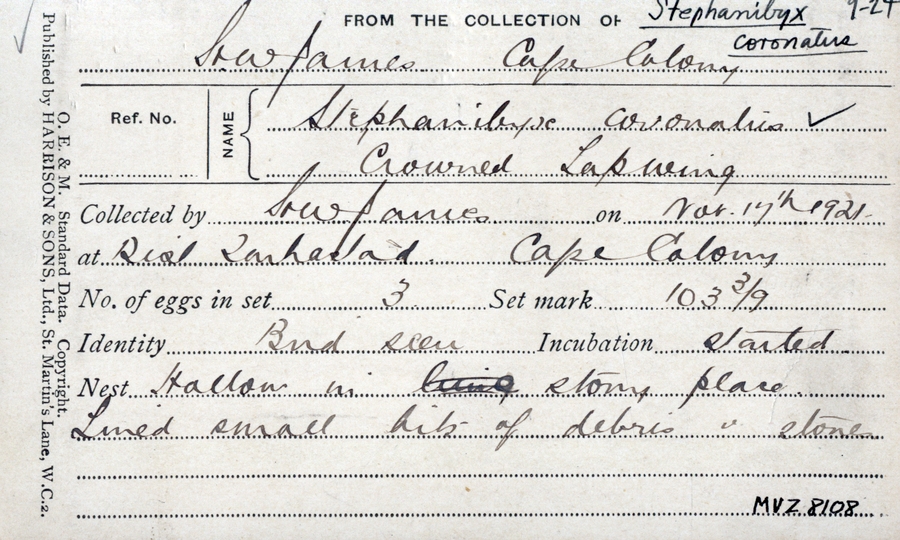 FROM THE COLLECTION OF Stephanibyx 9-24
coronatus
James Cape Colony
Ref. No. NAME Stephanibyx coronatus ✓
Crowned Lapwing
Collected by James on Nov. 17th 1921.
at Dist Cape Colony
No. of eggs in set 3 Set mark 103 3/9
Identity Bird seen Incubation started.
Nest Hollow in stony place
Lined small bits of debris " stones
MVZ 8108
O. E. & M. Standard Data. Copyright.
Published by HARRISON & SONS, Ltd., St. Martin's Lane, W.C.2.